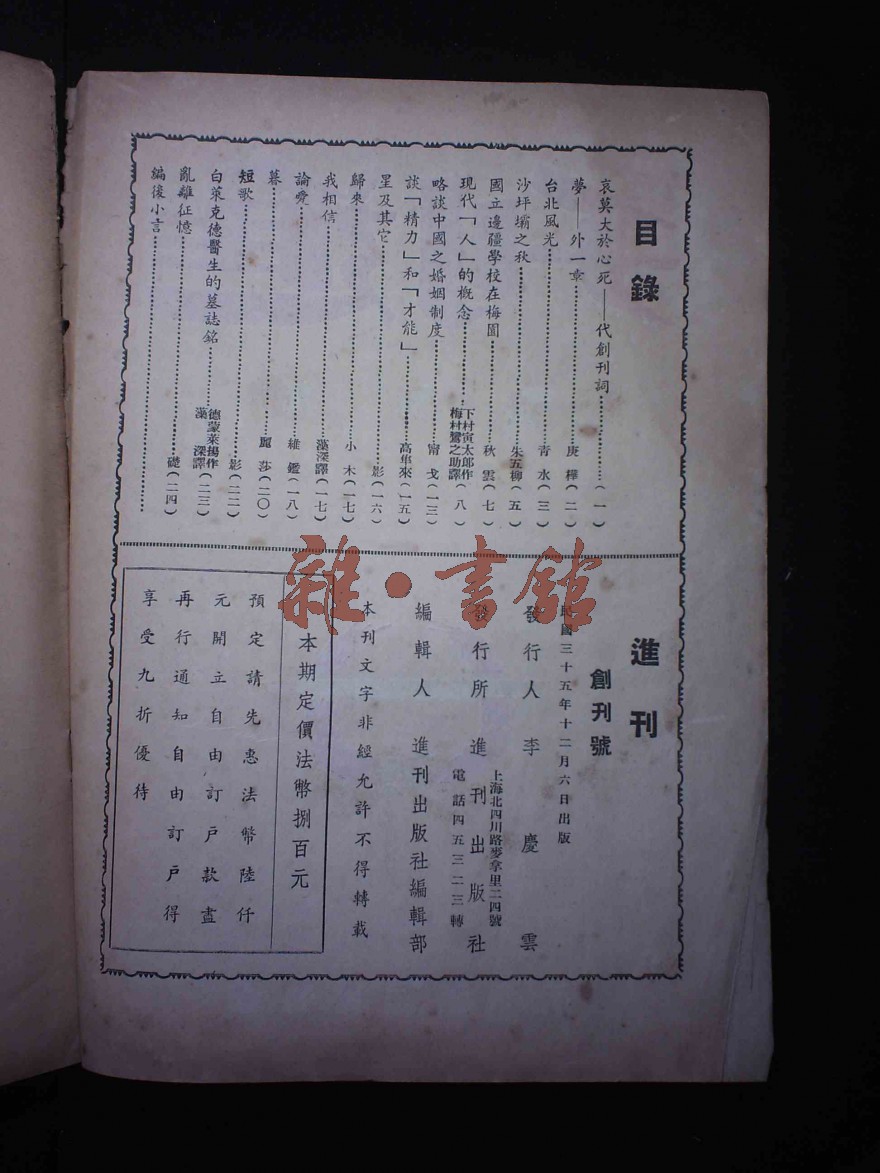 目錄
哀莫大於心死——代創刊詞…………(一)
夢——外一章…………庚樺(二)
台北風光…………青水(三)
沙坪壩之秋…………朱五柳(五)
國立邊疆學校在梅園…………秋雲(七)
現代「人」的概念…………下村寅太郎作 梅村鷺之助譯(八)
略談中國之婚姻制度…………甯戈(一三)
談「精力」和「才能」…………高隼來(一五)
星及其它…………影(一六)
歸來…………小木(一七)
我相信…………藻深譯(一七)
論愛…………維鑑(一八)
暮…………麗莎(二〇)
短歌…………影(二二)
白萊克德醫生的墓誌銘…………德蒙萊揚作 藻深譯(二三)
亂離征憶…………礎(二四)
編後小言…………
進刊
創刊號
民國三十五年十二月六日出版
發行人 李慶雲
發行所 進刊出版社
上海北四川路麥拿里二四號
電話四五三二三轉
編輯人 進刊出版社編輯部
本刊文字非經允許不得轉載
本期定價法幣捌百元
預定請先惠法幣陸仟
元開立自由訂戶款盡
再行通知自由訂戶得
享受九折優待
雜·書館